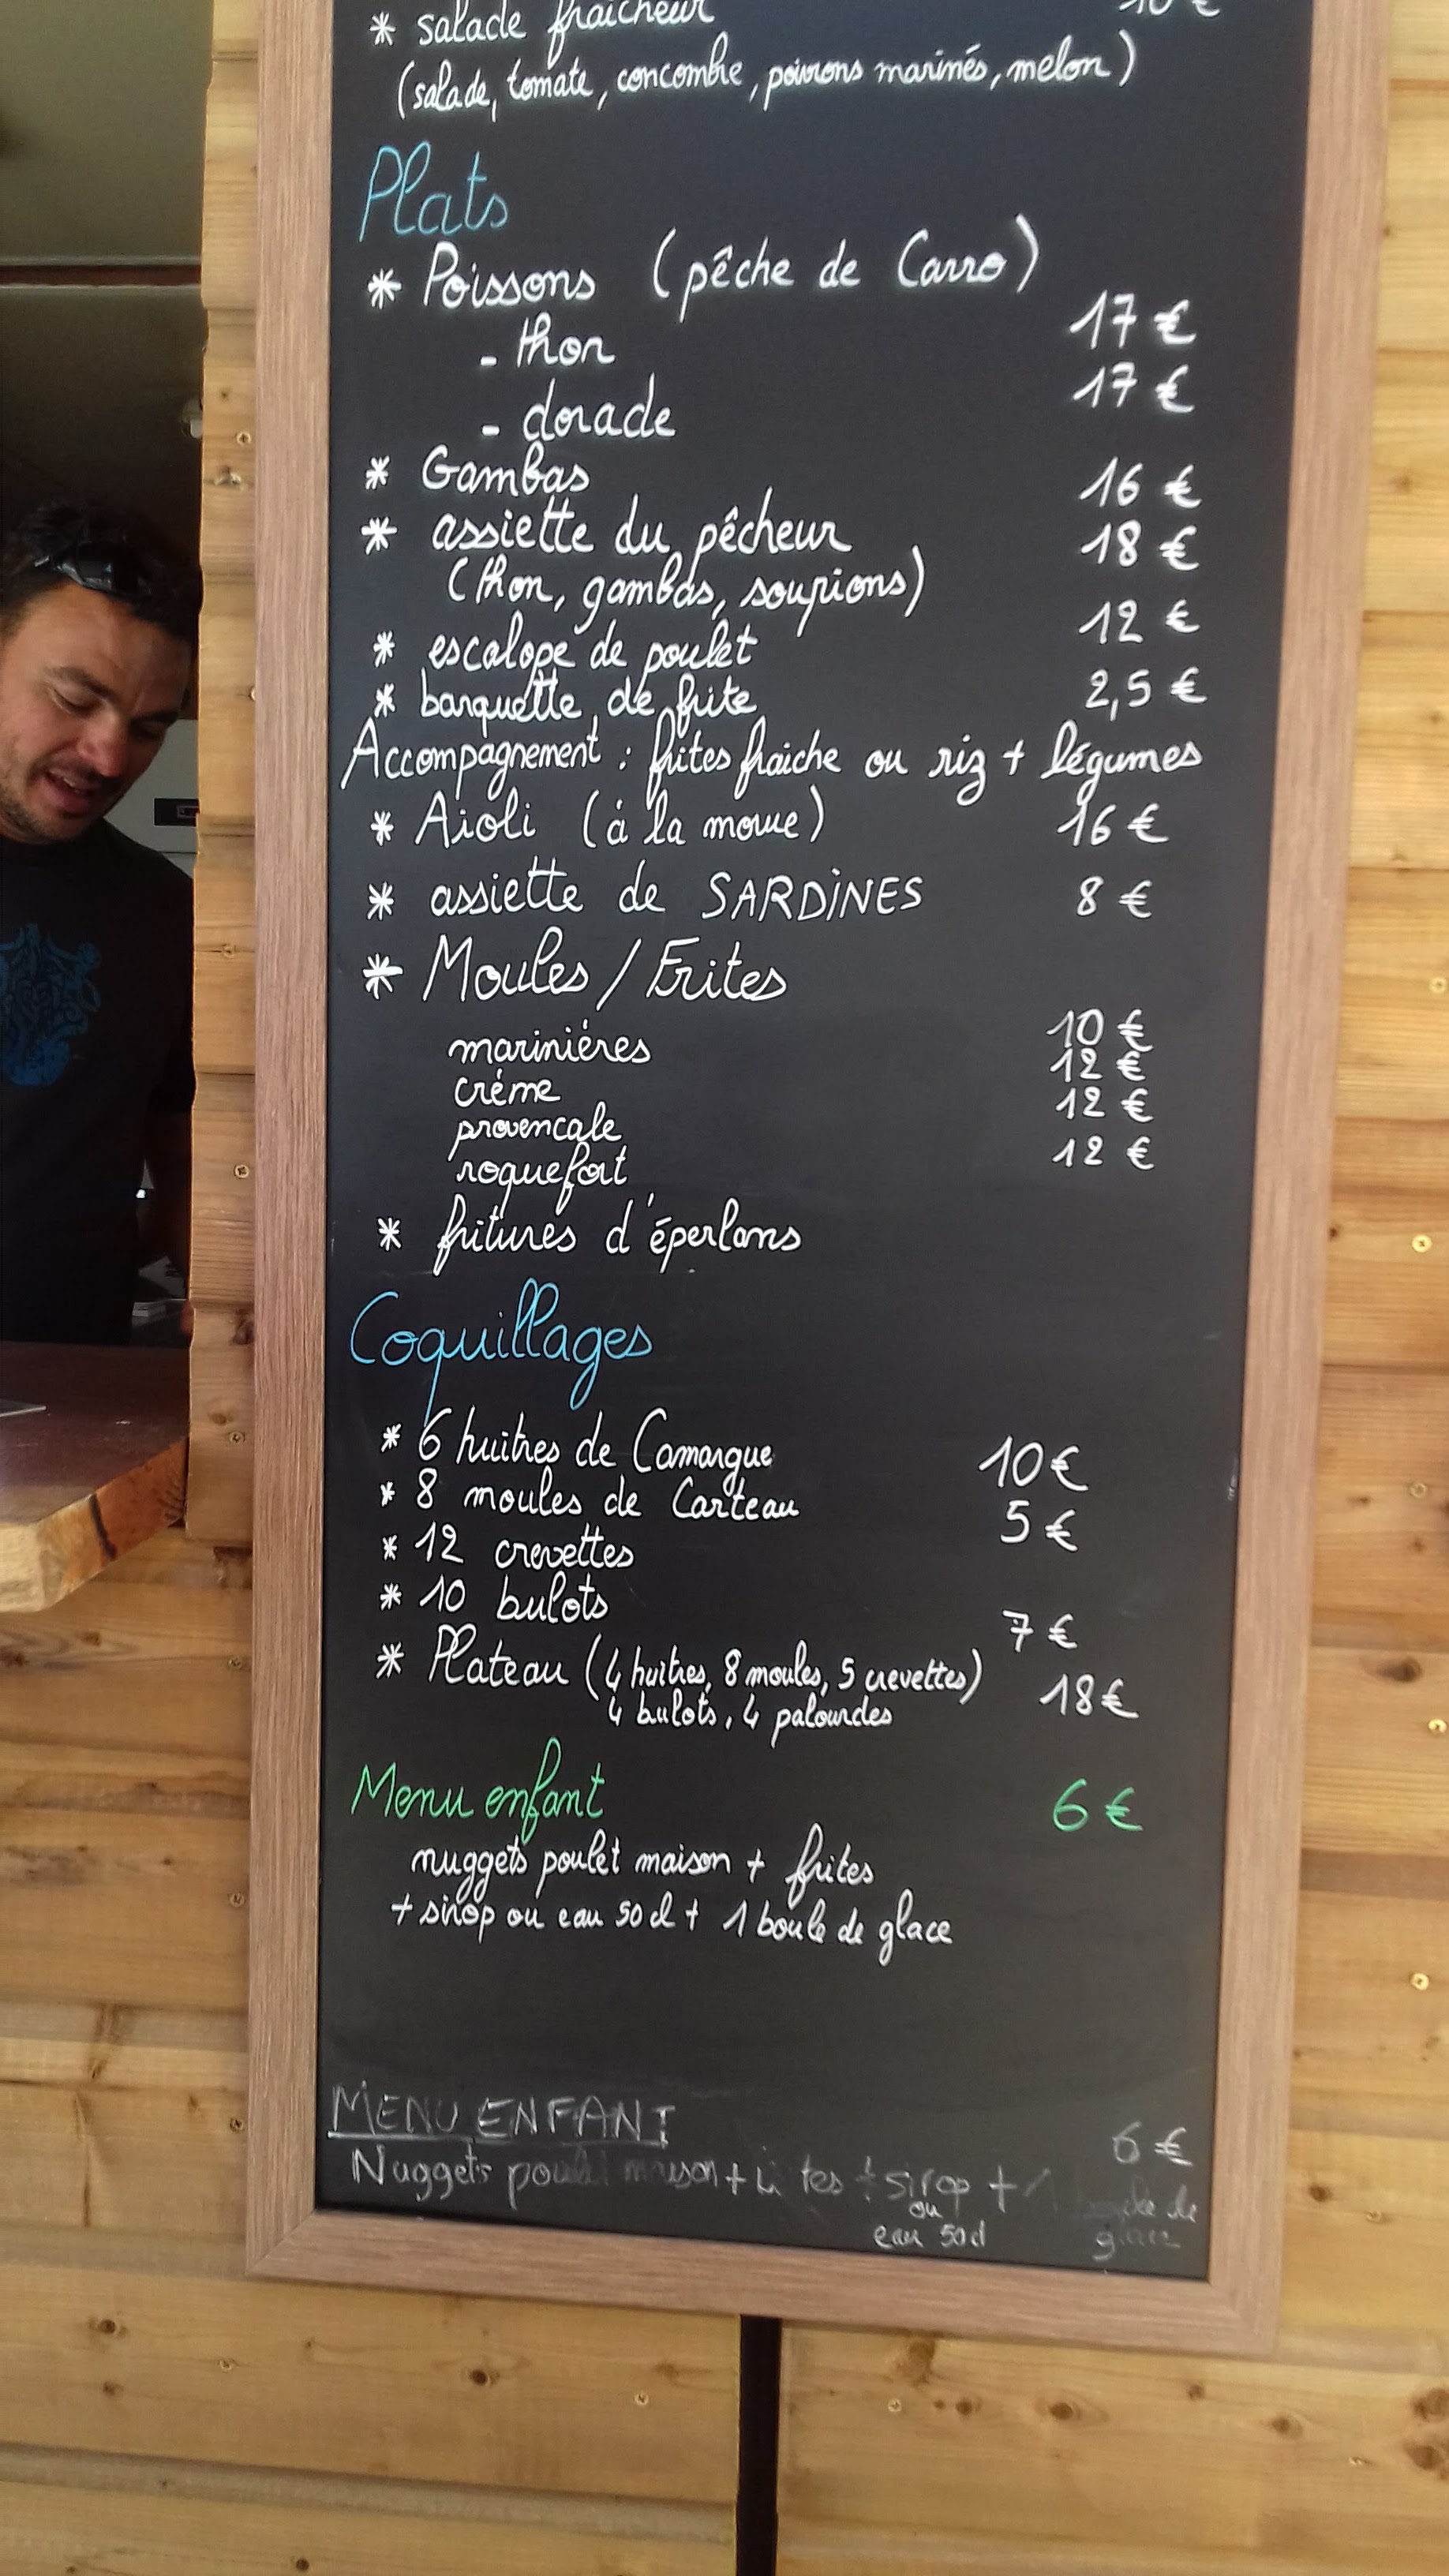 * salade fraicheur 10 €
(salade, tomate, concombre, poivrons marinés, melon)
Plats
* Poissons (pêche de Carro)
- thon 17 €
- dorade 17 €
* Gambas 16 €
* assiette du pêcheur 18 €
(thon, gambas, soupions)
* escalope de poulet 12 €
* barquette de frite 2,5 €
Accompagnement : frites fraiche ou riz + légumes
* Aioli (à la morue) 16 €
* assiette de SARDiNES 8 €
* Moules / Frites
marinières 10 €
crème 12 €
provencale 12 €
roquefort 12 €
* fritures d'éperlans
Coquillages
* 6 huitres de Camargue 10 €
* 8 moules de Carteau 5 €
* 12 crevettes
* 10 bulots 7 €
* Plateau (4 huitres, 8 moules, 5 crevettes) 18 €
4 bulots, 4 palourdes
Menu enfant 6 €
nuggets poulet maison + frites
+ sirop ou eau 50 cl + 1 boule de glace
MENU ENFANT 6 €
Nuggets maison + + sirop + 1 de
ou
eau 50 cl glace